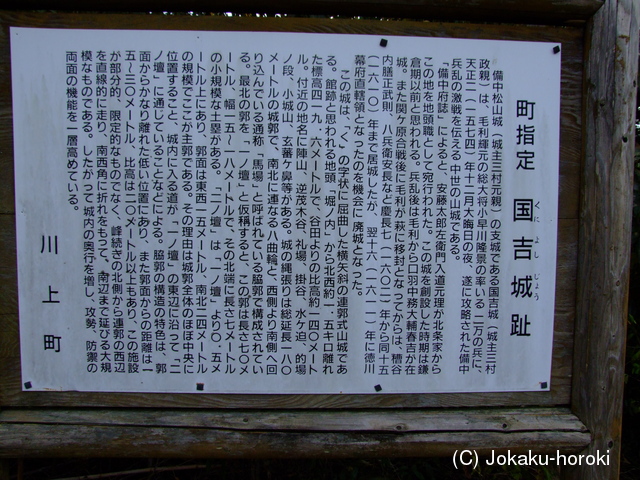 町指定 国吉城趾
くに よし じょう
備中松山城（城主三村元親）の支城である国吉城（城主三村
政親）は、毛利輝元の総大将小早川隆景の率いる二万の兵に、
天正二（一五七四）年十二月大晦日の夜、遂に攻略された備中
兵乱の激戦を伝える中世の山城である。
「備中府志」によると、安藤太郎左衛門入道元理が北条家から
この地を地頭職として宛行われた。この城を創設した時期は鎌
倉期以前と思われる。兵乱後は毛利から口羽中務大輔春吉が在
城。また関ヶ原合戦後に毛利が萩に移封となってからは、糟谷
内膳正武則、八兵衛安長など慶長七（一六〇二）年から同十五
（一六一〇）年まで居城したが、翌十六（一六一一）年に徳川
幕府直轄領となったのを機会に廃城となった。
この城は、「く」の字状に屈曲した横矢斜の連郭式山城であ
る。館跡と思われる地頭「堀ノ内」から北西約一・五キロ離れ
た標高四一九．六メートルで、谷田よりの比高約一四〇メート
ル。付近の地名に陣山、逆茂木谷、礼場、掛谷、水ヶ迫、的場
ノ段、小城山、玄蕃ヶ鼻等がある。城の縄張りは総延長一八〇
メートルの城郭で、南北に連なる八曲輪と、西側より南側へ回
り込んでいる通称「馬場」と呼ばれている脇郭で構成されてい
る。最北の郭を「一ノ壇」と仮称すると、この郭は長さ七〇メ
ートル、幅一五～一八メートルで、その北端に長さ七メートル
の小規模な土塁がある。「二ノ壇」は「一ノ壇」より〇．五メ
ートル上にあり、郭面は東西一五メートル、南北二四メートル
の規模でここが主郭である。その理由は城郭全体のほぼ中央に
位置すること、城内に入る道が「一ノ壇」の東辺に沿って「二
ノ壇」に通じていることなどによる。脇郭の構造の特色は、郭
面からかなり離れた低い位置にあり、また郭面からの距離は一
五～三〇メートル、比高は二〇メートル以上もあり、この施設
が部分的、限定的なものでなく、峰続きの北側から連郭の西辺
を直線的に走り、南西角に折れをもって、南辺まで延びる大規
模なものである。したがって城内の奥行を増し、攻勢、防禦の
両面の機能を一層高めている。
川上町
(C) Jokaku-horoki